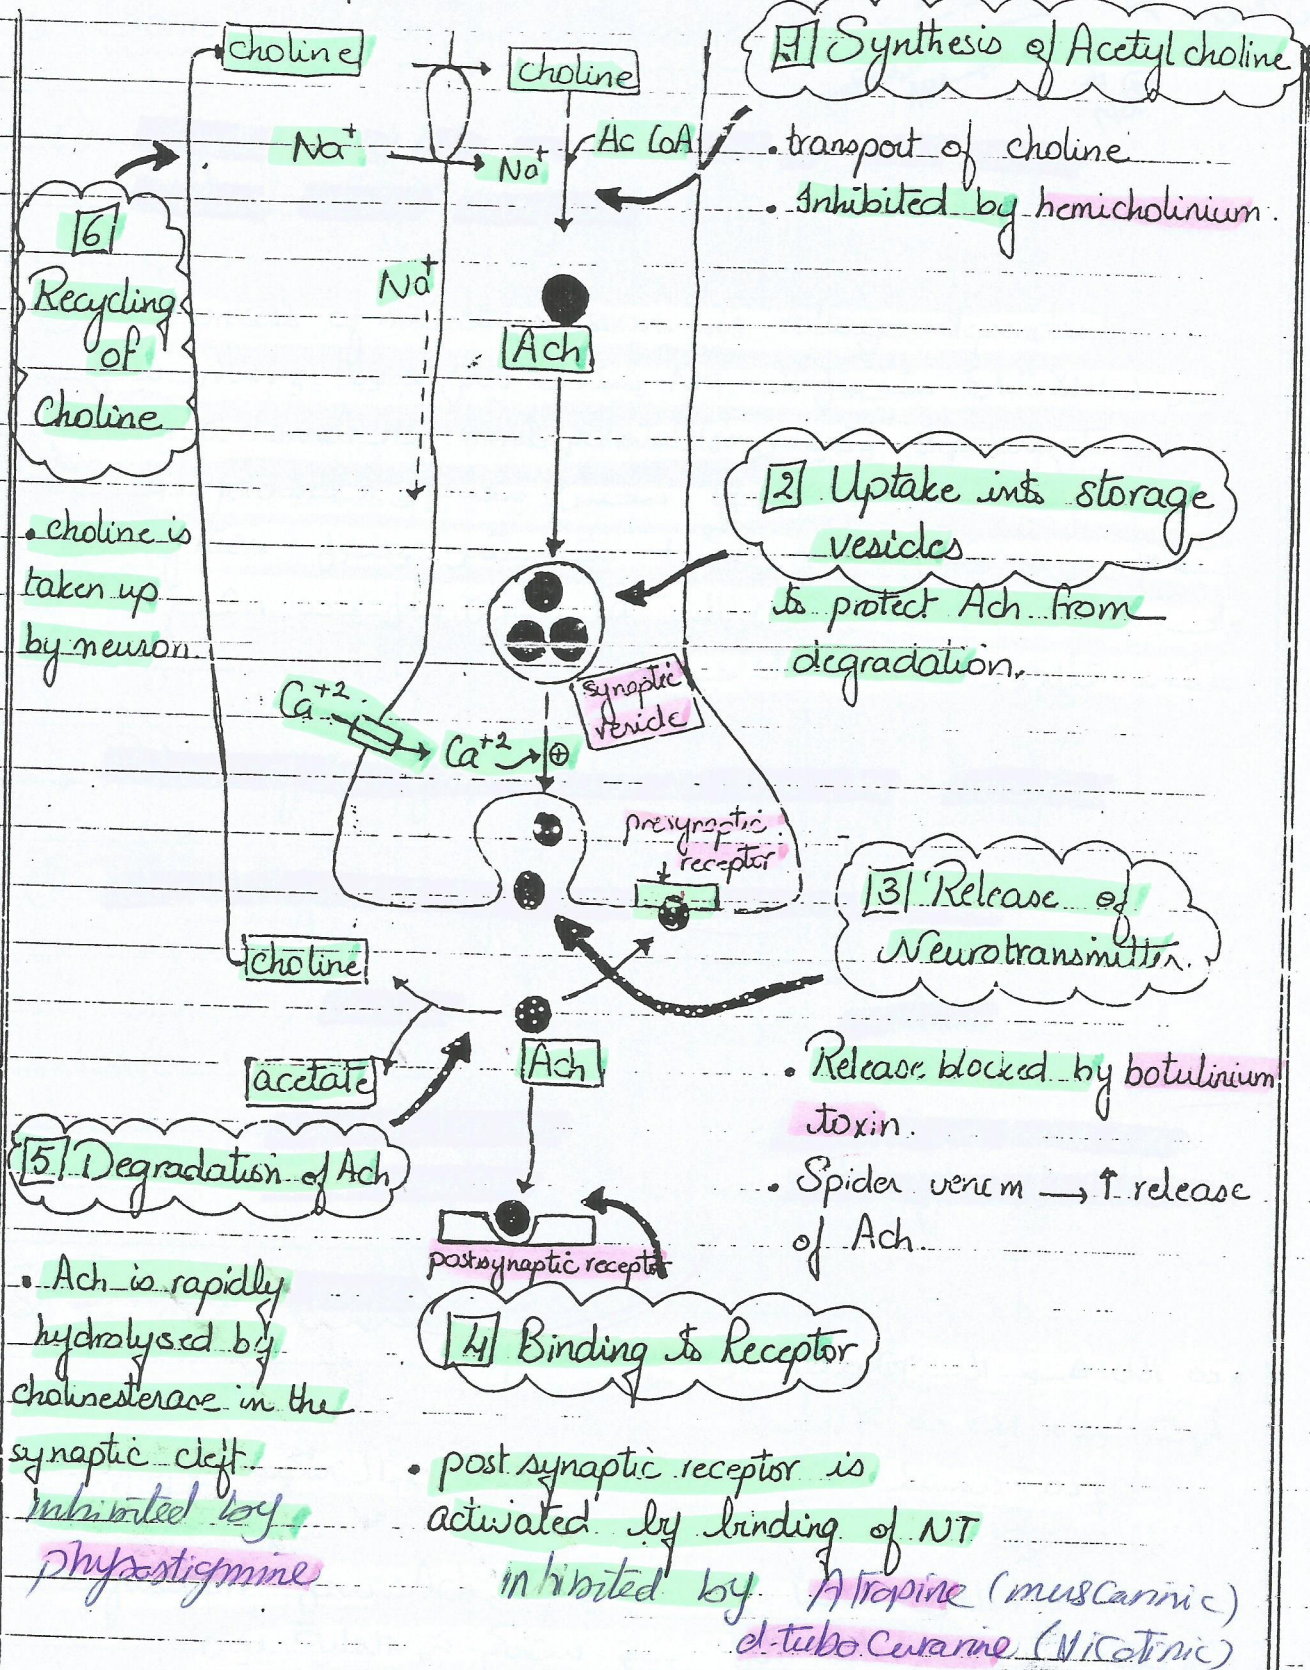 choline
choline
Na⁺
Na⁺
Ac CoA
1 Synthesis of Acetylcholine
. transport of choline
. Inhibited by hemicholinium.
6
Recycling
of
Choline
. choline is
taken up
by neuron.
Na⁺
Ach
2 Uptake into storage
vesicles
to protect Ach from
degradation.
synaptic
vesicle
Ca⁺²
Ca⁺²
⊕
presynaptic
receptor
3 Release of
Neurotransmitter.
. Release blocked by botulinium
toxin.
. Spider venom → ↑ release
of Ach.
choline
acetate
Ach
5 Degradation of Ach
. Ach is rapidly
hydrolysed by
cholinesterase in the
synaptic cleft.
inhibited by
physostigmine
postsynaptic receptor
4 Binding to Receptor
. post synaptic receptor is
activated by binding of NT
inhibited by Atropine (muscarinic)
d-tubo Curarine (Nicotinic)